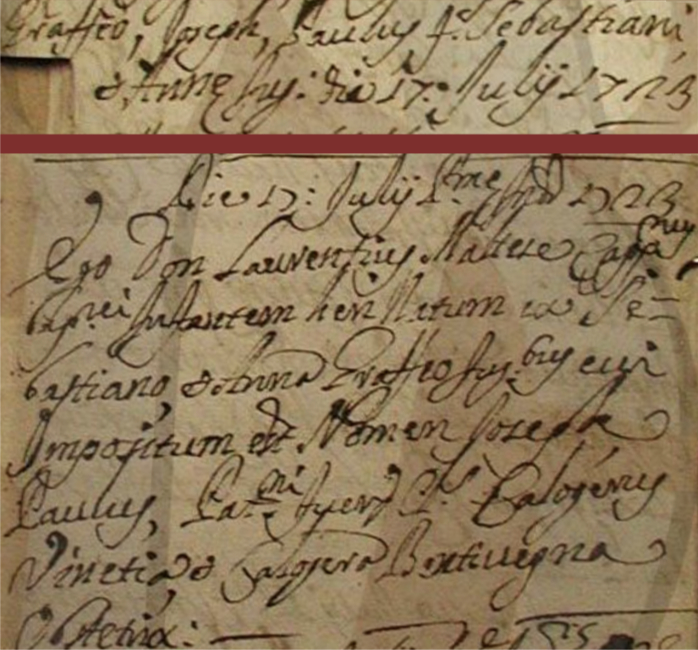 Graffeo, Joseph, Paulus f. Sebastiani,
& Annę Jug: die 17: Julij 1723
Die 17: Julij p.ᵐᵉ Ind 1723
Ego Don Laurentius Maltese Capp.ⁿᵘˢ
Bap.ᵛⁱ Infantem heri Natum ex Se=
bastiano, & Anna Graffeo Jug.ᵇᵘˢ cui
Impositum est Nomen Joseph
Paulus, Pat.ⁿⁱ fuer.
Calogerus
Vinetia & Calogera Bentivegna
Obstetrix: